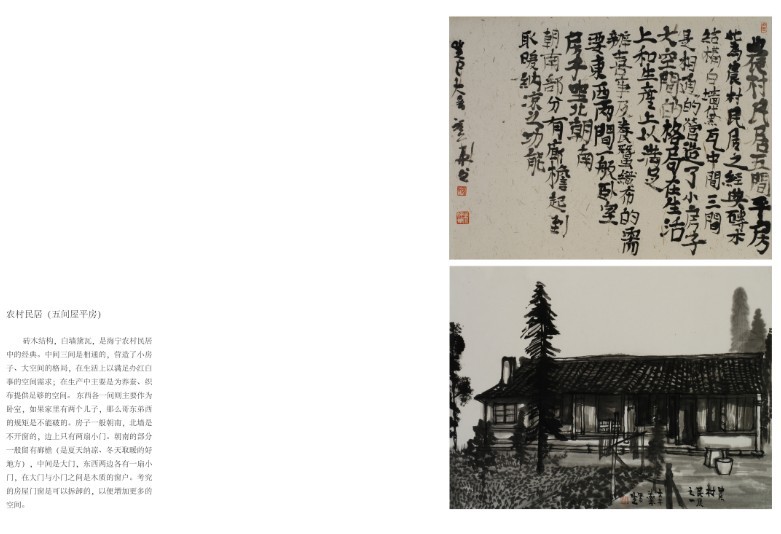 农村民居（五间屋平房）
砖木结构，白墙黛瓦，是海宁农村民居
中的经典。中间三间是相通的，营造了小房
子、大空间的格局，在生活上以满足办红白
事的空间需求；在生产中主要是为养蚕、织
布提供足够的空间。东西各一间则主要作为
卧室，如果家里有两个儿子，那么哥东弟西
的规矩是不能破的。房子一般朝南，北墙是
不开窗的，边上只有两扇小门。朝南的部分
一般留有廊檐（是夏天纳凉，冬天取暖的好
地方），中间是大门，东西两边各有一扇小
门，在大门与小门之间是木质的窗户。考究
的房屋门窗是可以拆卸的，以便增加更多的
空间。
農村民居五間平房
農村民居之經典磚木
结構白墙黛瓦中間三間
是相通的營造了小房子
大空間的格局在生活
上和生産上以滿足
辦喜事及養蠶織布的需
要東西两間一般卧室
房子坐北朝南
朝南部分有廊檐起到
取暖纳凉之功能